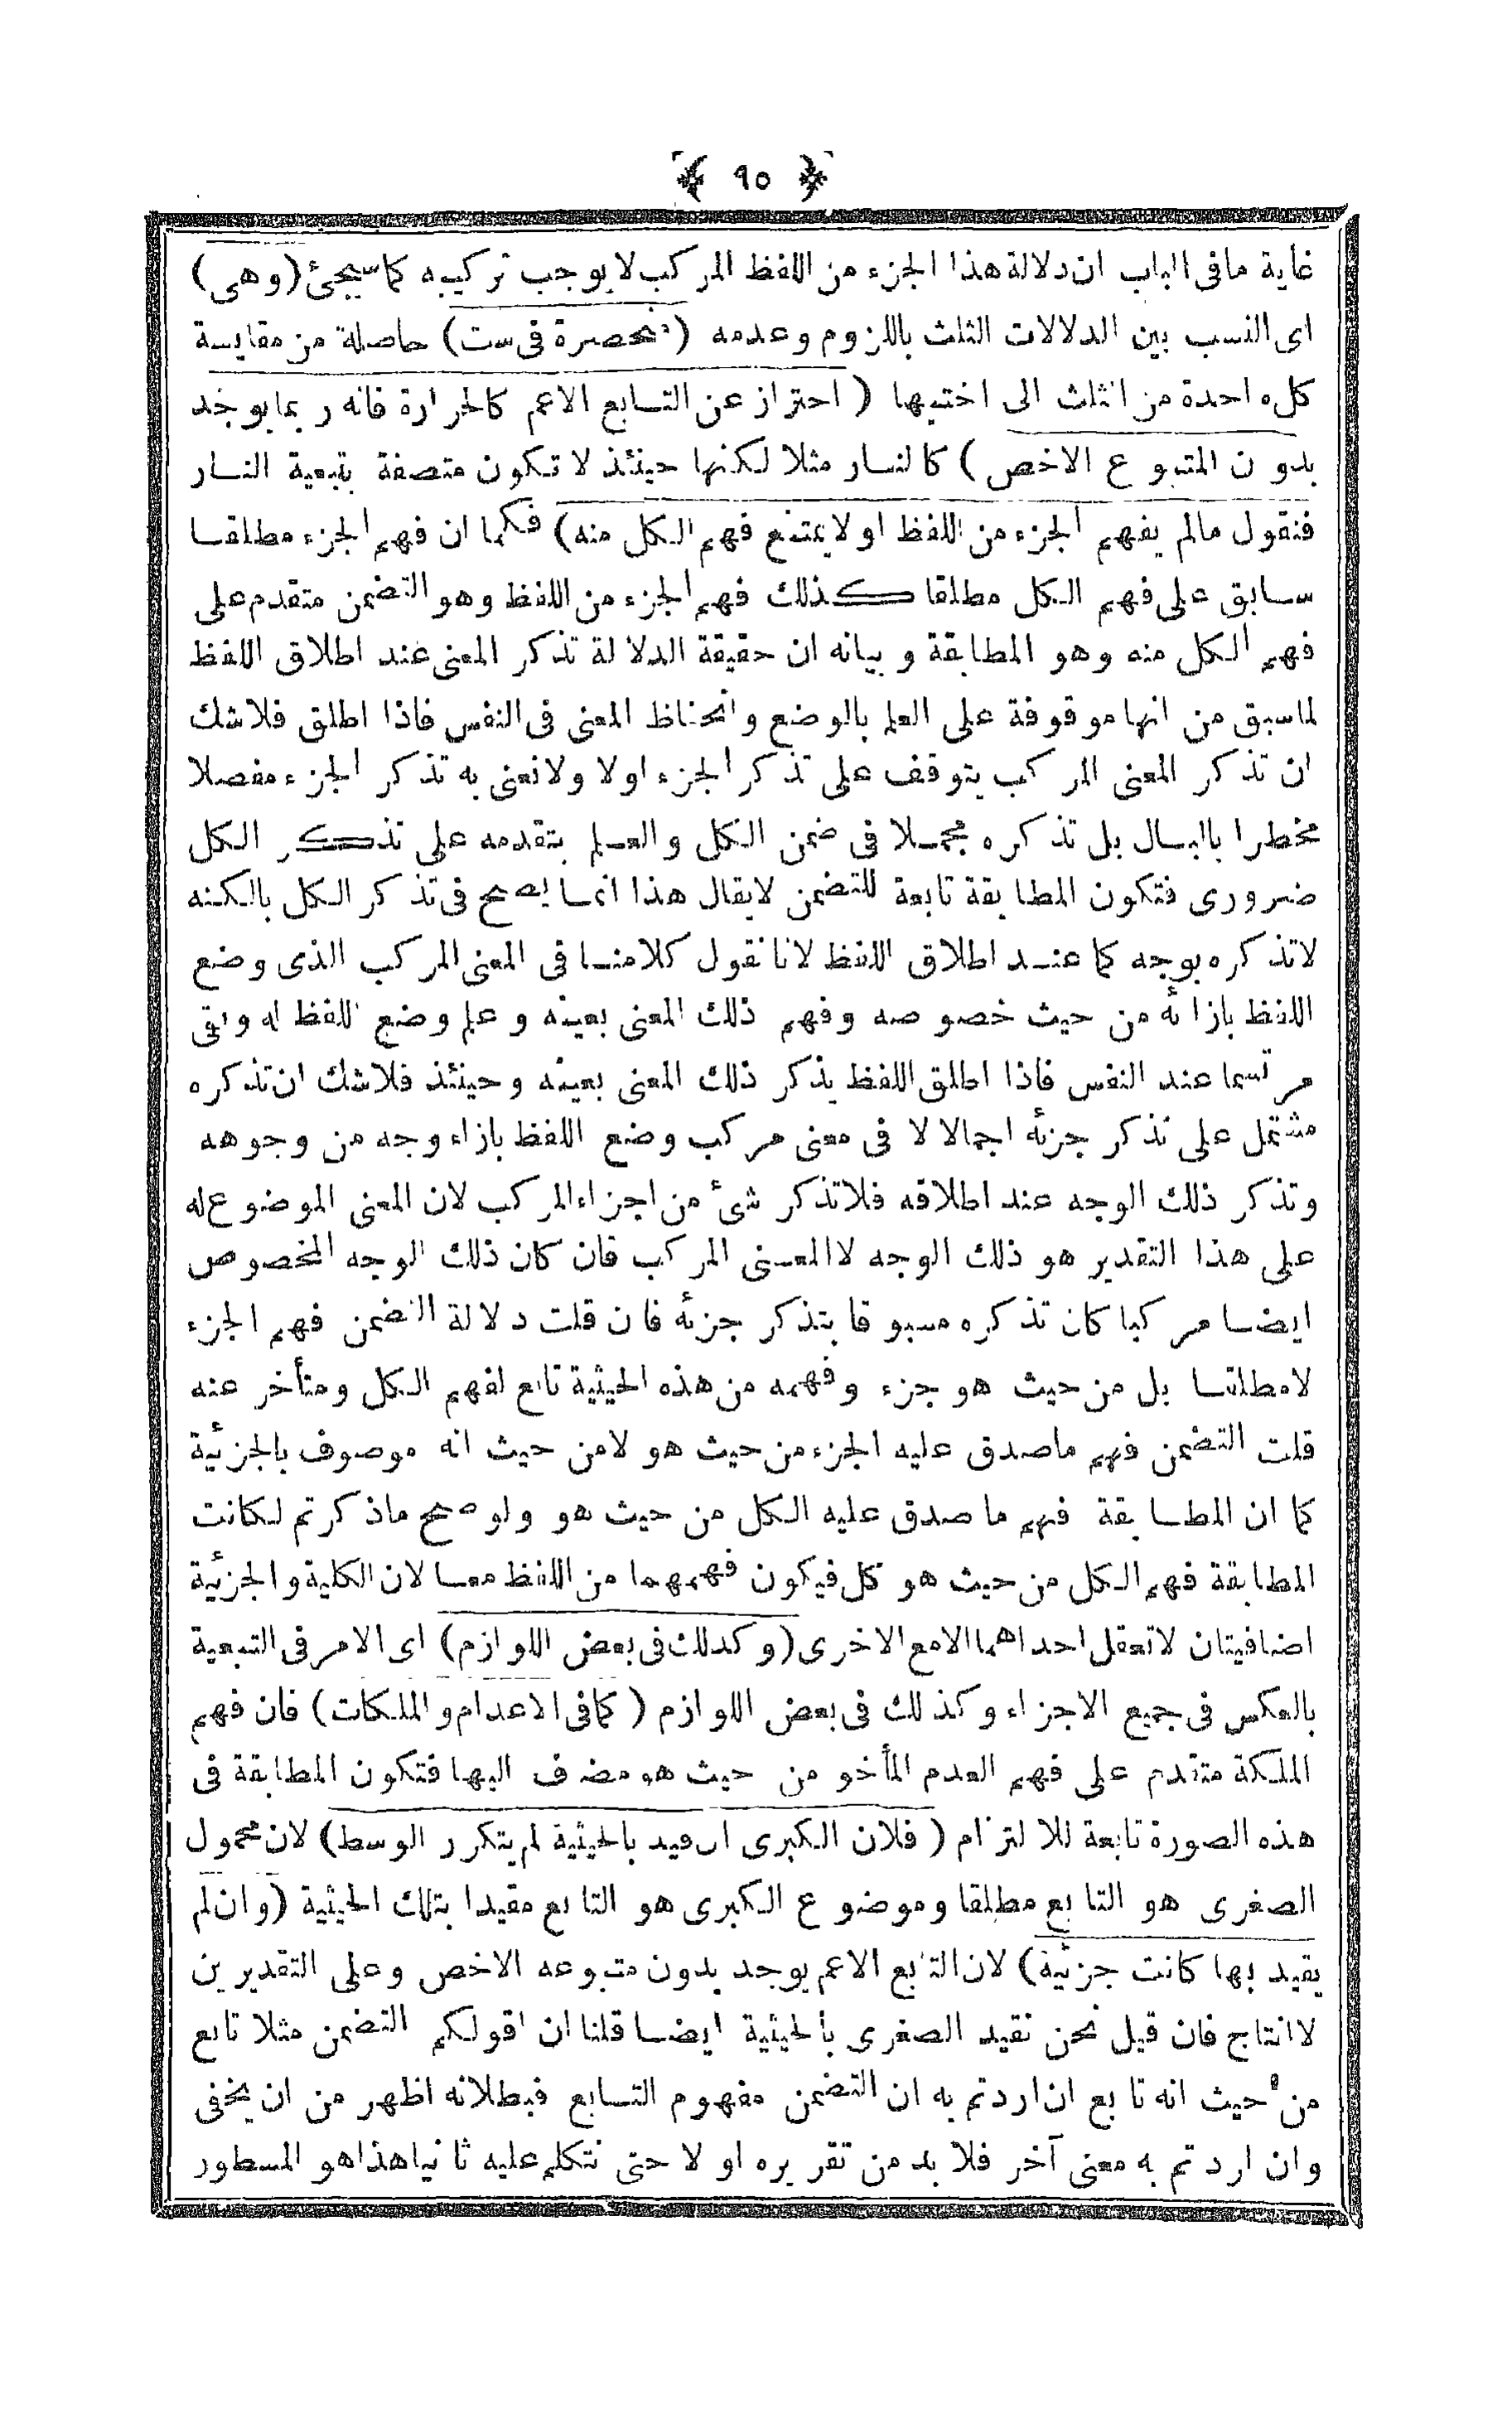 ﴿ ٩٥ ﴾
غاية مافى الباب ان دلالة هذا الجزء من اللفظ المركب لا يوجب تركيبه كما سيجئ (وهى)
اى النسب بين الدلالات الثلث باللزوم وعدمه (منحصرة فى ست) حاصلة من مقايسة
كل واحدة من الثلث الى اختيها ( احتراز عن التابع الاعم كالحرارة فانه ربما يوجد
بدون المتبوع الاخص ) كالنار مثلا لكنها حينئذ لا تكون متصفة بتبعية النار
فنقول مالم يفهم الجزء من اللفظ اولا يمتنع فهم الكل منه) فكما ان فهم الجزء مطلقا
سابق على فهم الكل مطلقا كذلك فهم الجزء من اللفظ وهو التضمن متقدم على
فهم الكل منه وهو المطابقة وبيانه ان حقيقة الدلالة تذكر المعنى عند اطلاق اللفظ
لماسبق من انها موقوفة على العلم بالوضع وانحفاظ المعنى فى النفس فاذا اطلق فلاشك
ان تذكر المعنى المركب يتوقف على تذكر الجزء اولا ولا نعنى به تذكر الجزء مفصلا
مخطرا بالبال بل تذكره مجملا فى ضمن الكل والعلم بتقدمه على تذكر الكل
ضرورى فتكون المطابقة تابعة للتضمن لايقال هذا انما يصح فى تذكر الكل بالكنه
لاتذكره بوجه كما عند اطلاق اللفظ لانا نقول كلامنا فى المعنى المركب الذى وضع
اللفظ بازائه من حيث خصوصه وفهم ذلك المعنى بعينه وعلم وضع اللفظ له وبقى
مرتسما عند النفس فاذا اطلق اللفظ يذكر ذلك المعنى بعينه وحينئذ فلاشك ان تذكره
مشتمل على تذكر جزئه اجمالا لا فى معنى مركب وضع اللفظ بازاء وجه من وجوهه
وتذكر ذلك الوجه عند اطلاقه فلاتذكر شئ من اجزاء المركب لان المعنى الموضوع له
على هذا التقدير هو ذلك الوجه لا المعنى المركب فان كان ذلك الوجه المخصوص
ايضا مركبا كان تذكره مسبوقا بتذكر جزئه فان قلت دلالة التضمن فهم الجزء
لامطلقا بل من حيث هو جزء وفهمه من هذه الحيثية تابع لفهم الكل ومتأخر عنه
قلت التضمن فهم ماصدق عليه الجزء من حيث هو لامن حيث انه موصوف بالجزئية
كما ان المطابقة فهم ما صدق عليه الكل من حيث هو ولو صح ماذكرتم لكانت
المطابقة فهم الكل من حيث هو كل فيكون فهمهما من اللفظ معا لان الكلية والجزئية
اضافيتان لاتعقل احداهما الامع الاخرى (وكذلك فى بعض اللوازم) اى الامر فى التبعية
بالعكس فى جميع الاجزاء وكذلك فى بعض اللوازم ( كمافى الاعدام والملكات) فان فهم
الملكة متقدم على فهم العدم المأخو من حيث هو مضاف اليها فتكون المطابقة فى
هذه الصورة تابعة للالتزام ( فلان الكبرى ان قيد بالحيثية لم يتكرر الوسط) لان محمول
الصغرى هو التابع مطلقا وموضوع الكبرى هو التابع مقيدا بتلك الحيثية (وان لم
يقيد بها كانت جزئية) لان التابع الاعم يوجد بدون متبوعه الاخص وعلى التقديرين
لا انتاج فان قيل نحن نقيد الصغرى بالحيثية ايضا قلنا ان قولكم التضمن مثلا تابع
من حيث انه تابع ان اردتم به ان التضمن مفهوم التابع فبطلانه اظهر من ان يخفى
وان اردتم به معنى آخر فلا بد من تقريره اولا حتى نتكلم عليه ثانيا هذا هو المسطور